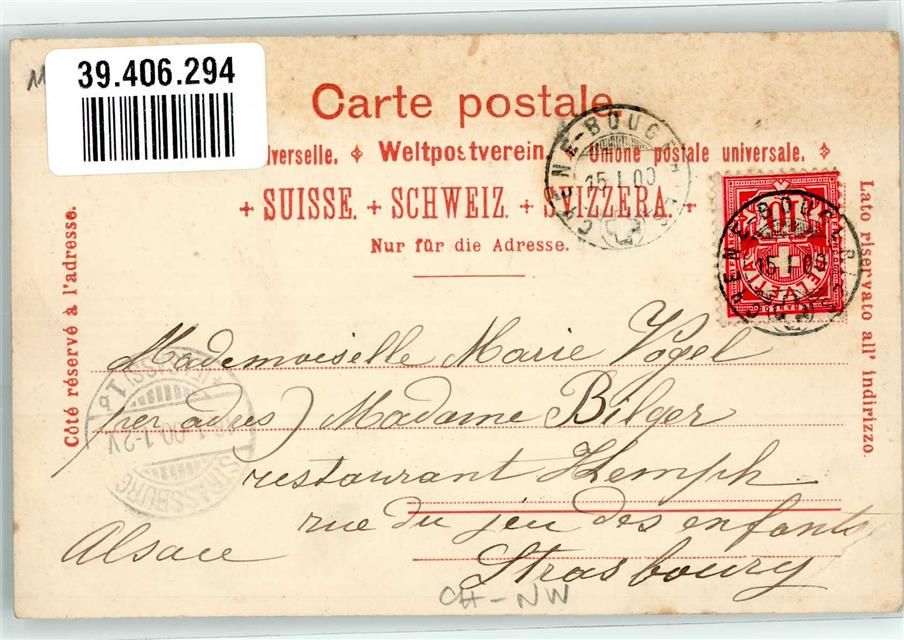 39.406.294
Carte postale.
iverselle. Weltpostverein. Unione postale universale.
+ SUISSE. + SCHWEIZ. + SVIZZERA. +
Nur für die Adresse.
Côté réservé à l'adresse.
Lato riservato all' indirizzo.
CHÊNE-BOUGERIES
15.I.00
10
HELVETIA
CHÊNE-BOUGERIES
15.I.00
STRASSBURG
1.00.1-2N
Mademoiselle Marie Vogel
(per adres) Madame Bilger
restaurant Klemph
rue du jeu des enfants
Strasbourg
Alsace
CH-NW